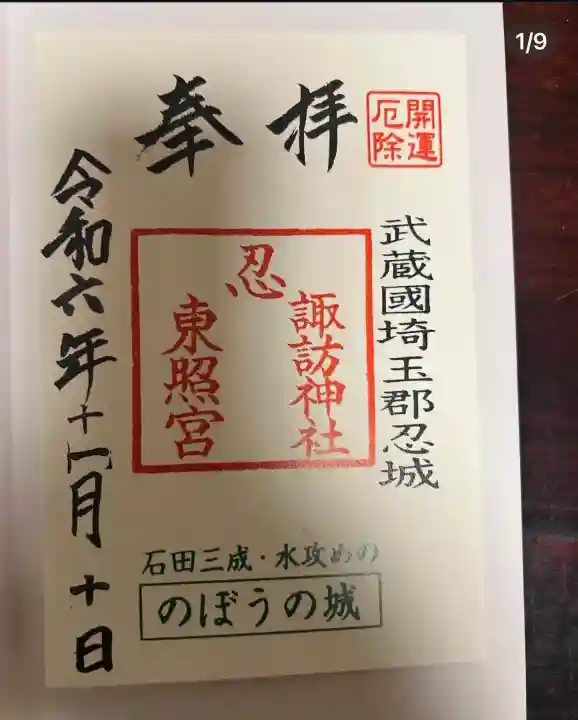 1/9
開運
厄除
奉拝
武蔵國埼玉郡忍城
忍
諏訪神社
東照宮
令和六年十一月十日
石田三成・水攻めの
のぼうの城